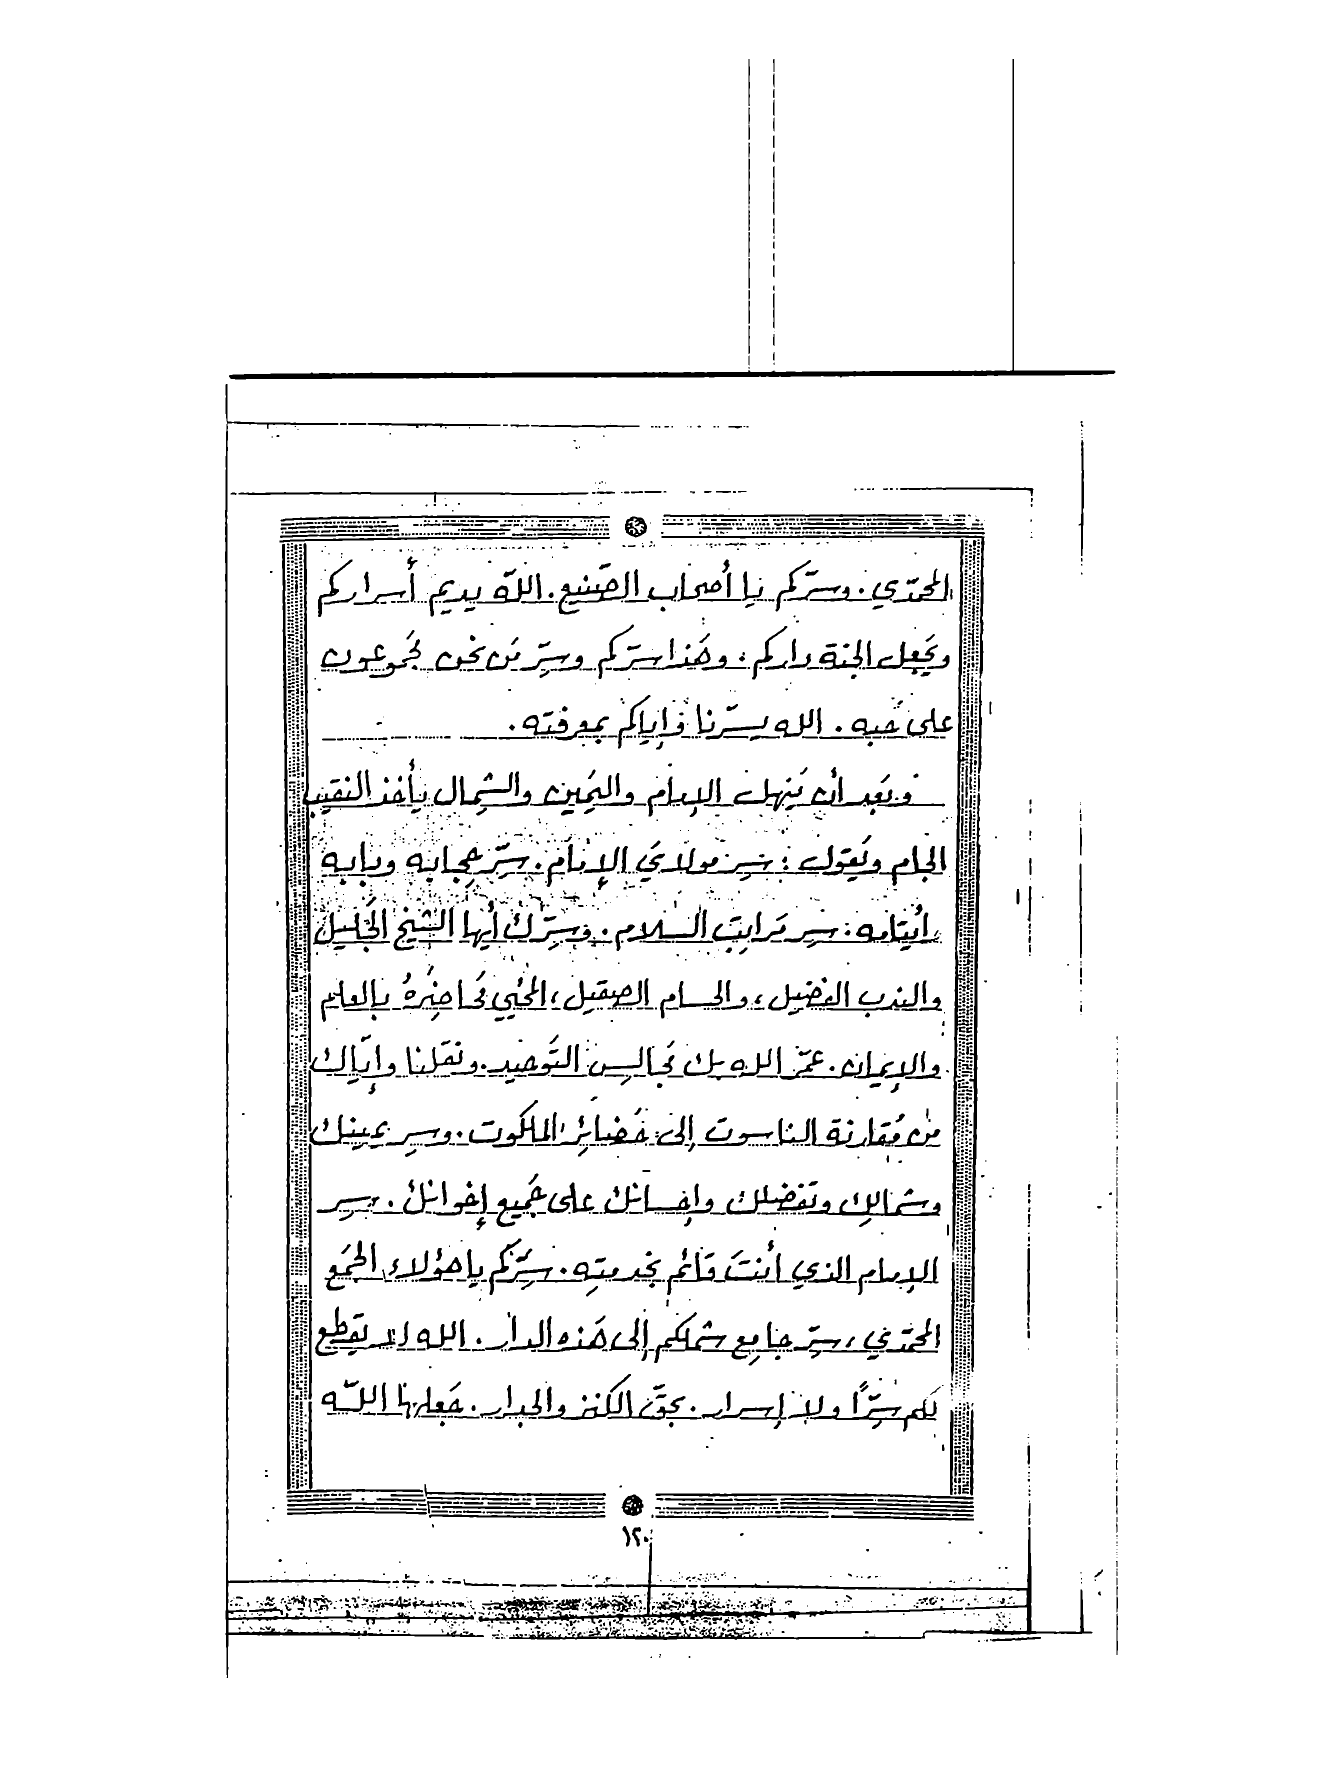 المحمّدي. وسرّكم يا أصحاب الصّنيع. اللّه يديم أسراركم
ويَجعل الجنة داركم، وهَذا سرّكم وسِرّ مَن نحن مجُموعون
على حُبه. الله يسرّنا وإياكم بمعرفته.
وبَعد أن يَنهل الإمام واليَمين والشِمال يأخذ النقيب
الجام ويَقول: سِر مولايَ الإمام. سِرّ حِجابه وبابه
وأيتامه: سِر مَراتِب السلام. وسِرّك أيها الشيخ الجَليل
والندب الفضيل، والحسام الصقيل، المحُيي مَحاضِرهُ بالعلم
والإيمان. عمّر الله بك مَجالِس التَوحيد. ونقلنا وإيّاك
من مُقارنة الناسوت إلى حَضائر الملكوت. وسِر يمينك
وشمالك وتفضلك وإحسانك على جَميع إخوانك. سِر
الإمام الذي أنتَ قَائم بخدمتِه. سِرّكم يا هؤلاء الجمَع
المحمّدي، سِرّ جامِع شملكم إلى هَذه الدار. الله لا يَقطع
لَكم سِرّاً ولا إسرار. بحقّ الكنز والجدار. جَعلها اللّه
١٢٠